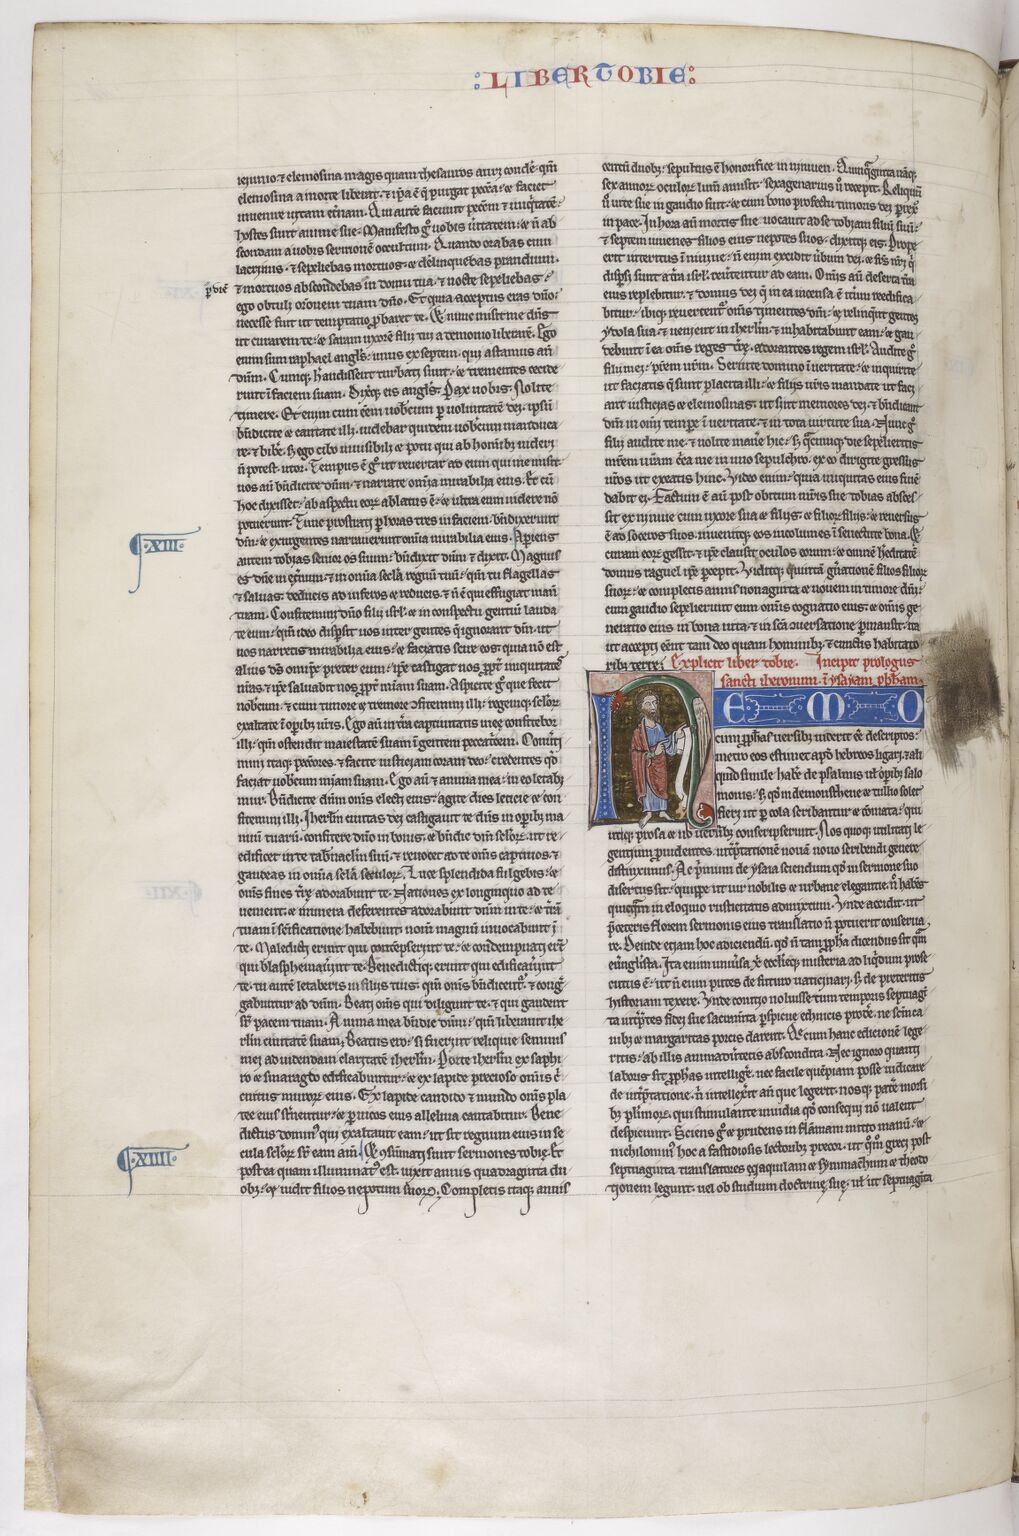 :LIBER TOBIE:
ieiunio ⁊ elemosina magis quam thesauros auri condere. qm̄
elemosina a morte liberat. ⁊ ip̄a ē q̄ purgat pecc̄a. ⁊ faciet
inuenire uitam et̄nam. Qui autē faciunt pecc̄m ⁊ iniq̇tatē
hostes sunt anime sue. Manifesto gͦ uobis ūitatem. ⁊ ñ ab
scondam a uobis sermonē occultum. Quando orabas cum
lacrimis. ⁊ sepeliebas mortuos. ⁊ derelinquebas prandium.
p̱ diē
⁊ mortuos abscondebas in domu tua. ⁊ nocte sepeliebas.
ego obtuli or̄onem tuam dn̄o. Et quia acceptus eras dn̄o.
necesse fuit ut temptatio ꝓbaret te. Et nunc misit me dn̄s
ut curarem te. ⁊ saram uxorē filij tui a demonio liberarē. Ego
enim sum raphael angl̄s. unus ex septem. qui astamus an̄
dn̄m. Cumq; h̄ audissent turbati sunt. ⁊ trementes cecide
runt ī faciem suam. Dixitq; eis angl̄s. Pax uobis. Nolite
timere. Et enim cum eēm uob̄cum ꝑ uoluntatē dei. ip̄sū
bn̄dicite ⁊ cantate illi. uidebar quidem uob̄cum manduca
re. ⁊ bibe͛. sꝫ ego cibo inuisibili ⁊ potu qui ab hom̄ibꝫ uideri
ñ potest utor. Tempus ē gͦ ut reuertar ad eum qui me misit.
uos aū bn̄dicite dn̄m. ⁊ narrate om̄ia mirabilia eius. Et cū
hoc dixisset. ab aspectu eoꝝ ablatus ē. ⁊ ultra eum uidere nō
potuerunt. Tunc prostrati ꝑ horas tres in faciem. bn̄dixerunt
dn̄m. ⁊ exurgentes narrauerunt om̄ia mirabilia eius. Aperiens
.XIII.
autem tobias senior os suum. bn̄dixit dn̄m ⁊ dixit. Magnus
es dn̄e in et̄num. ⁊ in om̄ia secl̄a regnū tuū. qm̄ tu flagellas
⁊ saluas. deducis ad inferos ⁊ reducis. ⁊ ñ ē qui effugiat manū
tuam. Confitemini dn̄o filij isrl̄. ⁊ in conspectu gentiū lauda
te eum. qm̄ ideo disꝑsit uos inter gentes q̄ ignorant dn̄m. ut
uos narretis mirabilia eius. ⁊ faciatis scire eos quia nō est
alius ds̄ om̄ip̄s preter eum. ip̄e castigat nos ꝓpt̄ iniquitates
nr̄as. ⁊ ip̄e saluabit nos ꝓpt̄ mīam suam. Aspicite gͦ que fecit
nobcum. ⁊ cum timore ⁊ tremore ꝯfitemini illi. regemq; sc̄loꝝ
exaltate ī oꝑibꝫ ūris. Ego aū in tr̄ra captiuitatis mee confitebor
illi. qm̄ ostendit maiestatē suam ī gentem peccatricem. Conūti
mini itaq; pecc̄ores. ⁊ facite iusticiam coram deo. credentes qd̄
faciat uob̄cum mīam suam. Ego aū ⁊ anima mea. in eo letabi
mur. Bn̄dicite dn̄m om̄s electi eius. agite dies leticie ⁊ con
fitemini illi. Iherl̄m ciuitas dei castigauit te dn̄s in oꝑibꝫ ma
nuū tuarū. confitere dn̄o in bonis. ⁊ bn̄dic dn̄m sc̄loꝝ. ut re
edificet in te tab̄naclm̄ suū. ⁊ reuocet ad te om̄s captiuos. ⁊
gaudeas in om̄ia secl̄a seculoꝝ. Luce splendida fulgebis. ⁊
om̄s fines tr̄e adorabunt te. Nationes ex longinquo ad te
uenient. ⁊ munera deferentes adorabunt dn̄m in te. ⁊ tr̄am
tuam ī sc̄ificatione habebunt. nom̄ magnū inuocabunt ī
te. Maledicti erunt qui contēpserint te. ⁊ condempnati er̄t
qui blasphemauerint te. Benedictiq; erunt qui edificauerint
te. tu autē letaberis in filijs tuis. qm̄ om̄s bn̄dicent̄. ⁊ cong̃
gabuntur ad dn̄m. Beati om̄s qui diligunt te. ⁊ qui gaudent
sr̄ pacem tuam. Anima mea bn̄dic dn̄m. qm̄ liberauit ihe
rl̄m ciuitatē suam. Beatus ero. si fuerint reliquie seminis
mei ad uidendam claritatē iherl̄m. Porte iherl̄m ex saphi
ro ⁊ smaragdo edificabuntur. ⁊ ex lapide precioso om̄is c̄
cuitus muroꝝ eius. Ex lapide candido ⁊ mundo om̄s pla
tee eius st̄nentur. ⁊ ꝑ uicos eius alleluia cantabitur. Bene
dictus dominus qui exaltauit eam. ut sit regnum eius in se
cula sc̄loꝝ sr̄ eam am̄. Et ꝯsūmati sunt sermones tobie. Et
.XIIII.
postea quam illuminat᷒ est. uixit annis quadraginta du
obꝫ. ⁊ uidit filios nepotum suoꝝ. Completis itaq; annis
centū duobꝫ. sepultus ē honorifice in niniuen. Quinq̄ginta nāq;
sex annoꝝ oculoꝝ lum̄ amisit. sexagenarius ū recepit. Reliquū
ū uite sue in gaudio fuit. ⁊ cum bono profectu timoris dei ꝑrex̄
in pace. In hora aū mortis sue uocauit ad se tobiam filiū suū.
⁊ septem iuuenes filios eius nepotes suos. dixitq; eis. Prope
erit interitus ī niniue. ñ enim excidit ūbum dei. ⁊ fr̄s nr̄i q̄
disꝑsi sunt a tr̄a isrl̄. reūtentur ad eam. Om̄is aū deserta tr̄a
eius replebitur. ⁊ domus dei q̄ in ea incensa ē it̄um reedifica
bitur. ibiq; reuertent̄ om̄s timentes dn̄m. ⁊ relinq̄nt gentes
ydola sua. ⁊ uenient in iherl̄m. ⁊ inhabitabunt eam. ⁊ gau
debunt ī ea om̄s reges tr̄e. adorantes regem isrl̄. Audite gͦ
filij mei. pr̄em ūrm. Seruite domino ī ueritate. ⁊ inquirite
ut faciatis q̄ sunt placita illi. ⁊ filijs ūris mandate ut faci
ant iusticias ⁊ elemosinas. ut sint memores dei. ⁊ bn̄dicant
dn̄m in om̄i tempe͛ ī ueritate. ⁊ in tota uirtute sua. Nunc gͦ
filij audite me. ⁊ nolite mane͛ hic. sꝫ q̄cumq; die sepelieritis
mr̄em ūram c̄ca me in uno sepulchro. ex eo dirigite gressus
ūros ut exeatis hinc. Video enim. quia iniquitas eius finē
dabit ei. Factum ē aū post obitum mr̄is sue tobias absces
sit ex niniue cum uxore sua ⁊ filijs. ⁊ filioꝝ filijs. ⁊ reuersus
ē ad soceros suos. inuenitq; eos incolumes ī senectute bona. Et
curam eoꝝ gessit. ⁊ ip̄e clausit oculos eorum. ⁊ omnē h̄editatē
domus raguel ip̄e ꝑcepit. Viditq; quintā gn̄ationē filios filioꝝ
suoꝝ. ⁊ completis annis nonaginta ⁊ nouem in timore dn̄i.
cum gaudio sepelierunt eum. omīs cognatio eius. ⁊ om̄is ge
neratio eius in bona uita. ⁊ in sc̄a ꝯuersatione ꝑmansit. ita
ut accepti eēnt tam deo quam hominibꝫ. ⁊ cunctis habitato
ribꝫ terre. Explicit liber tobie. Incipit prologus
sancti iheronimi. ī ysayam ꝓph̄am.
NEMO
cum ꝓph̄as uersibꝫ uiderit eē descriptos.
metro eos estimet apd̄ hebreos ligari. ⁊ ali
quid simile habe͛ de psalmis ul̄ oꝑibꝫ salo
monis. sꝫ qd̄ in demosthene ⁊ tullio solet
fieri ut ꝑ cola scribantur ⁊ cōmata. qui
utiq; prosa ⁊ nō uersibꝫ conscripserunt. Nos quoq; utilitati le
gentium prouidentes. int̄p̄tationē nouā nouo scribendi genere
distinximus. Ac p̄mum de ysaia sciendum qd̄ in sermone suo
disertus sit. quippe ut uir nobilis ⁊ urbane elegantie. ñ habēs
quicq̄m in eloquio rusticitatis admixtum. Vnde accidit. ut
p̄ ceteris florem sermonis eius translatio ñ potuerit conserua
re. Deinde etiam hoc adiciendū. qd̄ ñ tam ꝓph̄a dicendus sit q̄m
euūgl̄ista. Ita enim uniūsa xp̄i eccl̄ieq; misteria ad liq̇dum prose
cutus ē. ut ñ eum putes de futuro uaticinari. sꝫ de preteritis
historiam texere. Vnde conitio noluisse tum temporis septuagī
ta int̄p̄tes fidei sue sacram̄ta ꝑspicue ethnicis prode͛. ne sc̄m ca
nibꝫ ⁊ margaritas porcis darent. Que cum hanc edicionē lege
ritis. ab illis animaduertetis abscondita. Nec ignoro quanti
laboris sit ꝓph̄as intellige͛. nec facile quēpiam posse iudicare
de int̄p̄tatione. ñ intellexit an̄ que legerit. nosq; pate͛ morsi
bꝫ plimoꝝ. qui stimulante inuidia qd̄ consequi nō ualent
despiciunt. Sciens gͦ ⁊ prudens in flāmam mitto manū. ⁊
nichilominus hoc a fastidiosis lectoribꝫ precor. ut qm̄ greci post
septuaginta translatores aquilam ⁊ symmachum ⁊ theodo
tionem legunt. uel ob studium doctrine sue. ul̄ ut septuaginta